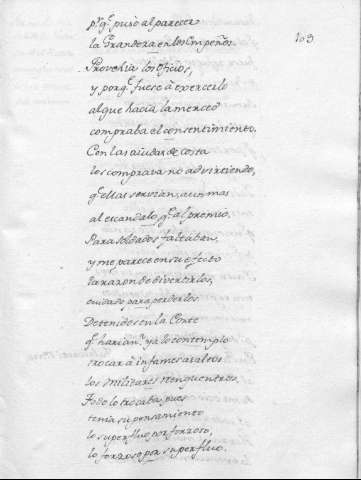 pr q̃ puso al parecer
la Grandeza en los Empeños.
103
Provehia los oficios,
y porq̃ fuese à exercerlo
al que hacia la merced
compraba el consentimiento.
Con las aiudas de costa
los comprava no advirtiendo,
q̃ ellas servian, aun mas
al escandalo, q̃ al premio.
Para soldados faltaban,
y me parece en su efecto
la razon de divertirlos,
cuidado para perderlos
Detenidos en la Corte
q̃ harian? ya lo contemplo
trocar à infames asaltos
los militares renquentros,
Todo lo trocaba, pues
tenia su pensamiento
lo superfluo por forzoso,
lo forzoso por superfluo.